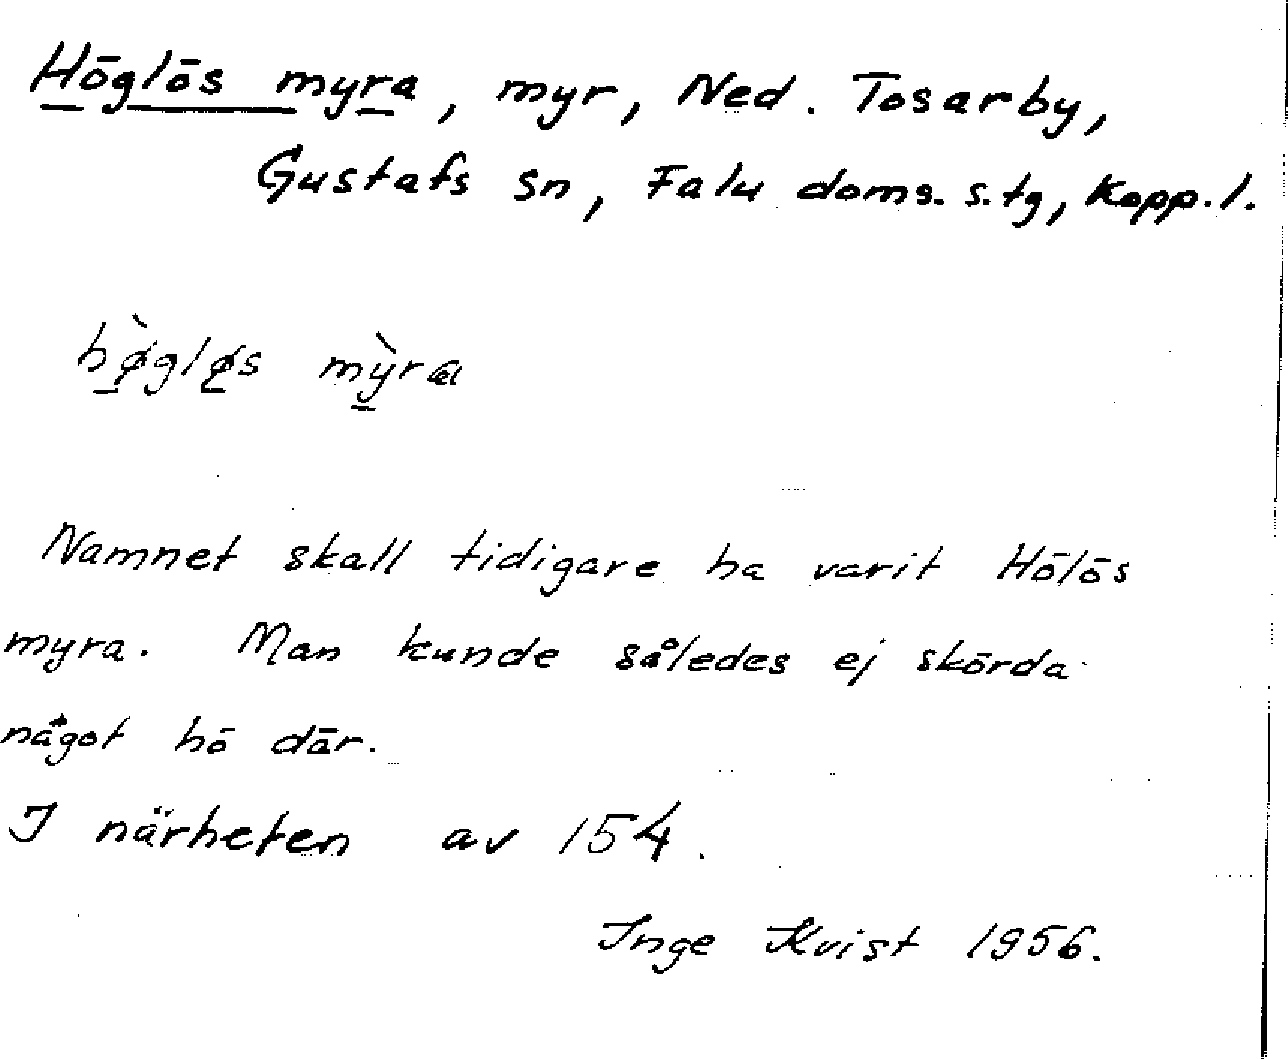 Höglös myra, myr, Ned. Tosarby,
Gustafs sn, Falu doms. s. tg, Kopp. l.
hø̀gløs mỳra
Namnet skall tidigare ha varit Hölös
myra. Man kunde således ej skörda
något hö där.
I närheten av 154.
Inge Kvist 1956.